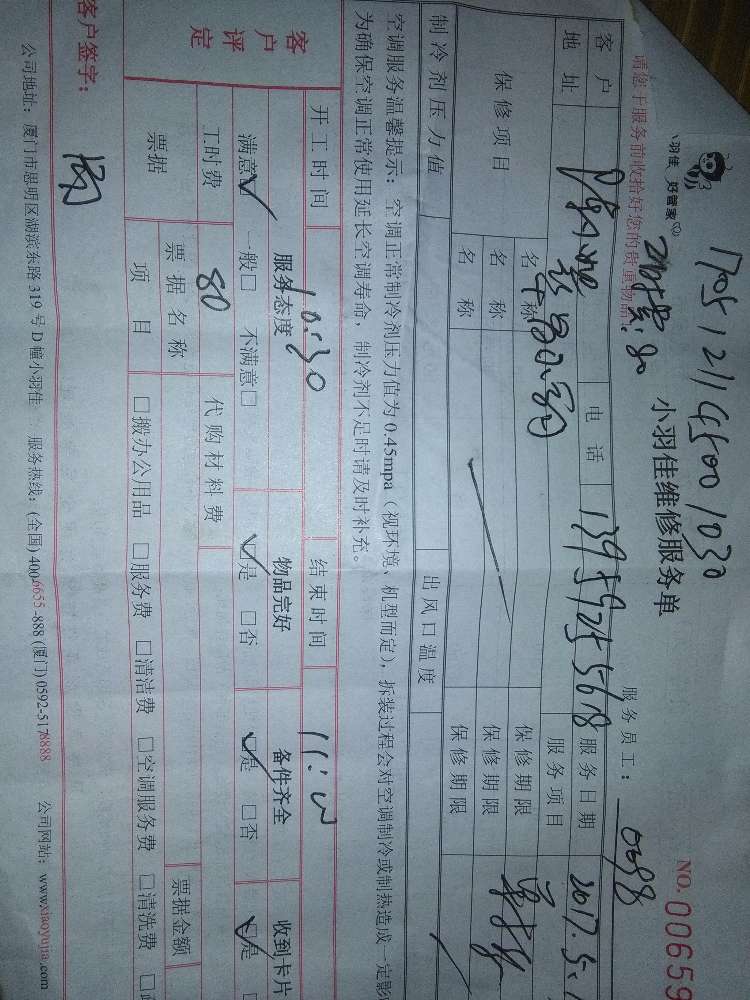 170512114500 1030
小羽佳 好管家
小羽佳维修服务单
NO.00659
请您于服务前收拾好您的贵重物品！
服务员工：
客户 电话 13959255618 服务日期 2017.5.1
地址 服务项目
保修项目 名称 保修期限
名称 保修期限
名称 保修期限
制冷剂压力值 出风口温度
空调服务温馨提示：空调正常制冷剂压力值为0.45mpa（视环境、机型而定），拆装过程会对空调制冷或制热造成一定影
为确保空调正常使用延长空调寿命，制冷剂不足时请及时补充。
客户评定 开工时间 10:30 结束时间
服务态度 物品完好 备件齐全 收到卡片
满意☑ 一般□ 不满意□ ☑是 □否 ☑是 □否 ☑是
工时费 80 代购材料费
票据 票据名称 票据金额
项目 □搬办公用品 □服务费 □清洁费 □空调服务费 □清洗费
客户签字：
公司地址：厦门市思明区湖滨东路319号D幢小羽佳 服务热线：(全国) 400-6655-888 (厦门) 0592-5178888 公司网站：www.xiaoyujia.com